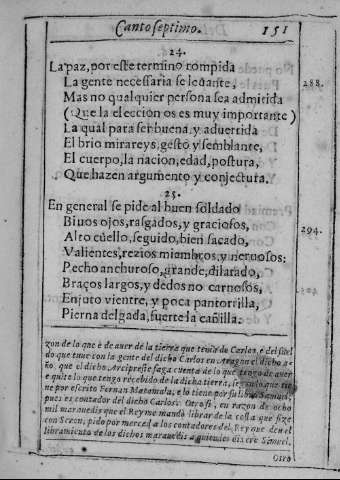 Canto septimo. 151
24.
La paz, por este termino rompida
La gente necessaria se leuante,
Mas no qualquier persona sea admitida
(Que la eleccion os es muy importante)
La qual para ser buena, y aduertida
El brio mirareys, gesto y semblante,
El cuerpo, la nacion, edad, postura,
Que hazen argumento y conjectura.
288.
25.
En general se pide al buen soldado
Biuos ojos, rasgados, y graciosos,
Alto cuello, seguido, bien sacado,
294.
Valientes, rezios miambros, y neruosos:
Pecho anchuroso, grande, dilatado,
Braços largos, y dedos no carnosos,
Enjuto vientre, y poca pantorrilla,
Pierna delgada, fuerte la canilla.
zon de lo que è de auer de la tierra que tenia de Carlos, e del suel
do que tuue con la gente del dicho Carlos en Aragon el dicho a-
ño. que el dicho Arcipreste faga cuenta de lo que tengo de auer
e quite lo que tengo recebido de la dicha tierra, segundo que tie
ne por escrito Fernan Matamala, e lo tiene por su libro Samuel,
pues es contador del dicho Carlos. Otrosi, en razon de ocho
mil marauedis que el Rey me mandò librar de la costa que fize
con Seron, pido por merced a los contadores del Rey que den el
libramiento de los dichos marauedis a quien les dixere Simuel.
Otro